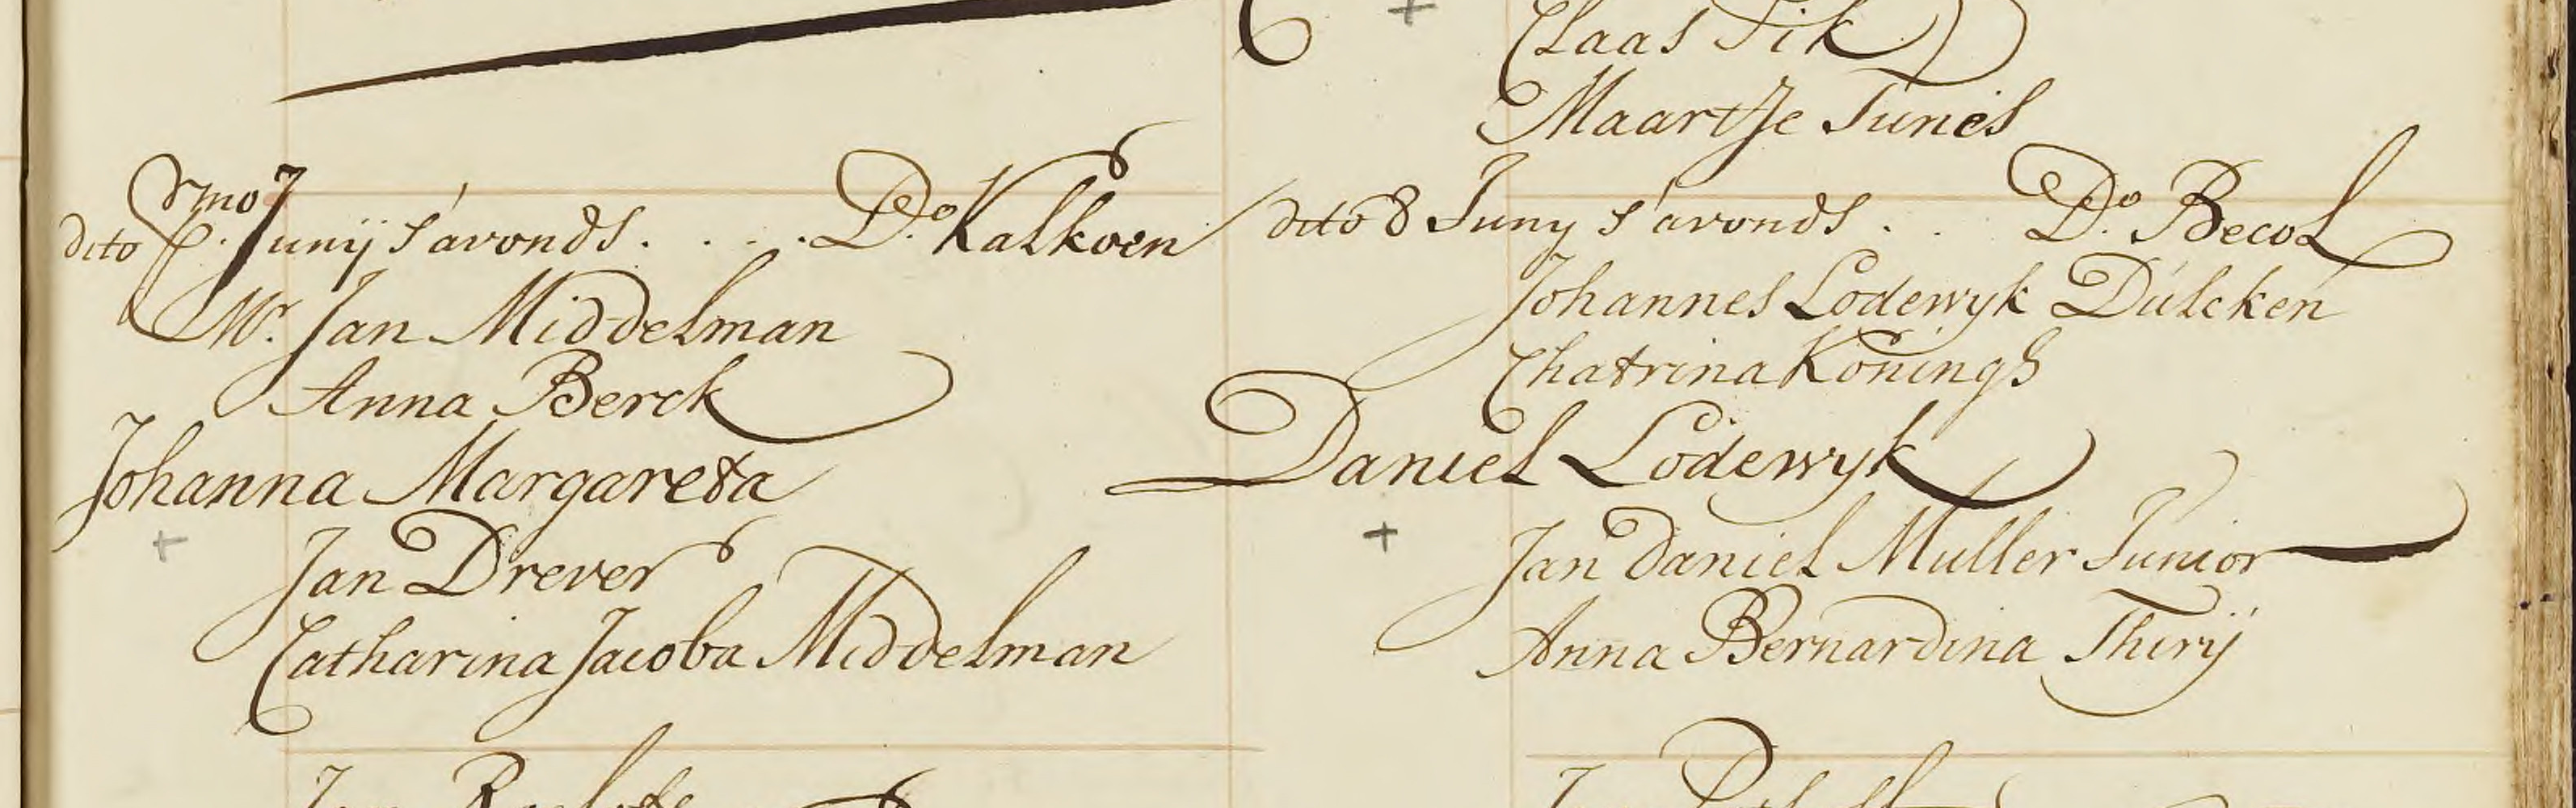 dito Pmo Junij s'avonds. . . . . Do. Kalkoen
Mr. Jan Middelman
Anna Berck
Johanna Margareta
+
Jan Drever
Catharina Jacoba Middelman
+
Claas Fik
Maartje Tunes
dito 8 Juny s'avonds . . Do. Becol
Johannes Lodewyk Dulcken
Chatrina Konings
Daniel Lodewyk
+
Jan Daniel Muller Junior
Anna Bernardina Thirij